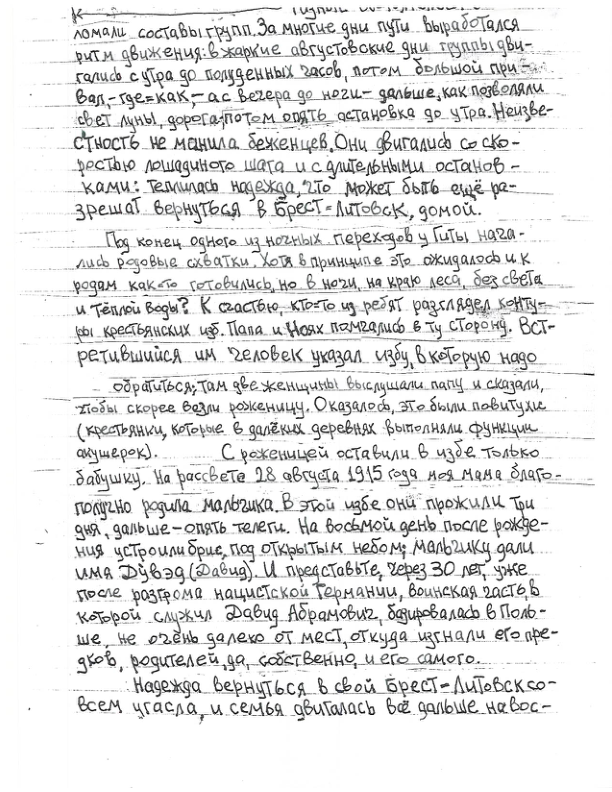 ломали составы групп. За многие дни пути выработался
ритм движения: в жаркие августовские дни группы дви-
гались с утра до полуденных часов, потом большой при-
вал,- где=как,- а с вечера до ночи- дальше, как позволяли
свет луны, дорога; потом опять остановка до утра. Неизве-
стность не манила беженцев. Они двигались со ско-
ростью лошадиного шага и с длительными останов-
ками: теплилась надежда, что может быть ещё ра-
зрешат вернуться в Брест=Литовск, домой.
Под конец одного из ночных переходов у Гиты нача-
лись родовые схватки. Хотя в принципе это ожидалось и к
родам как-то готовились, но в ночи, на краю леса, без света
и тёплой воды? К счастью, кто-то из ребят разглядел конту-
ры крестьянских изб. Папа и Ноях помчались в ту сторону. Вст-
ретившийся им человек указал избу, в которую надо
обратиться; там две женщины выслушали папу и сказали,
чтобы скорее везли роженицу. Оказалось, это были повитухи
(крестьянки, которые в далёких деревнях выполняли функции
акушерок). С роженицей оставили в избе только
бабушку. На рассвете 28 августа 1915 года моя мама благо-
получно родила мальчика. В этой избе они прожили три
дня, дальше - опять телеги. На восьмой день после рожде-
ния устроили брис, под открытым небом; мальчику дали
имя Дувэд (Давид). И представьте, через 30 лет, уже
после разгрома нацистской Германии, воинская часть, в
которой служил Давид Абрамович, базировалась в Поль-
ше, не очень далеко от мест, откуда изгнали его пре-
дков, родителей, да, собственно, и его самого.
Надежда вернуться в свой Брест=Литовск со-
всем угасла, и семья двигалась всё дальше на вос-